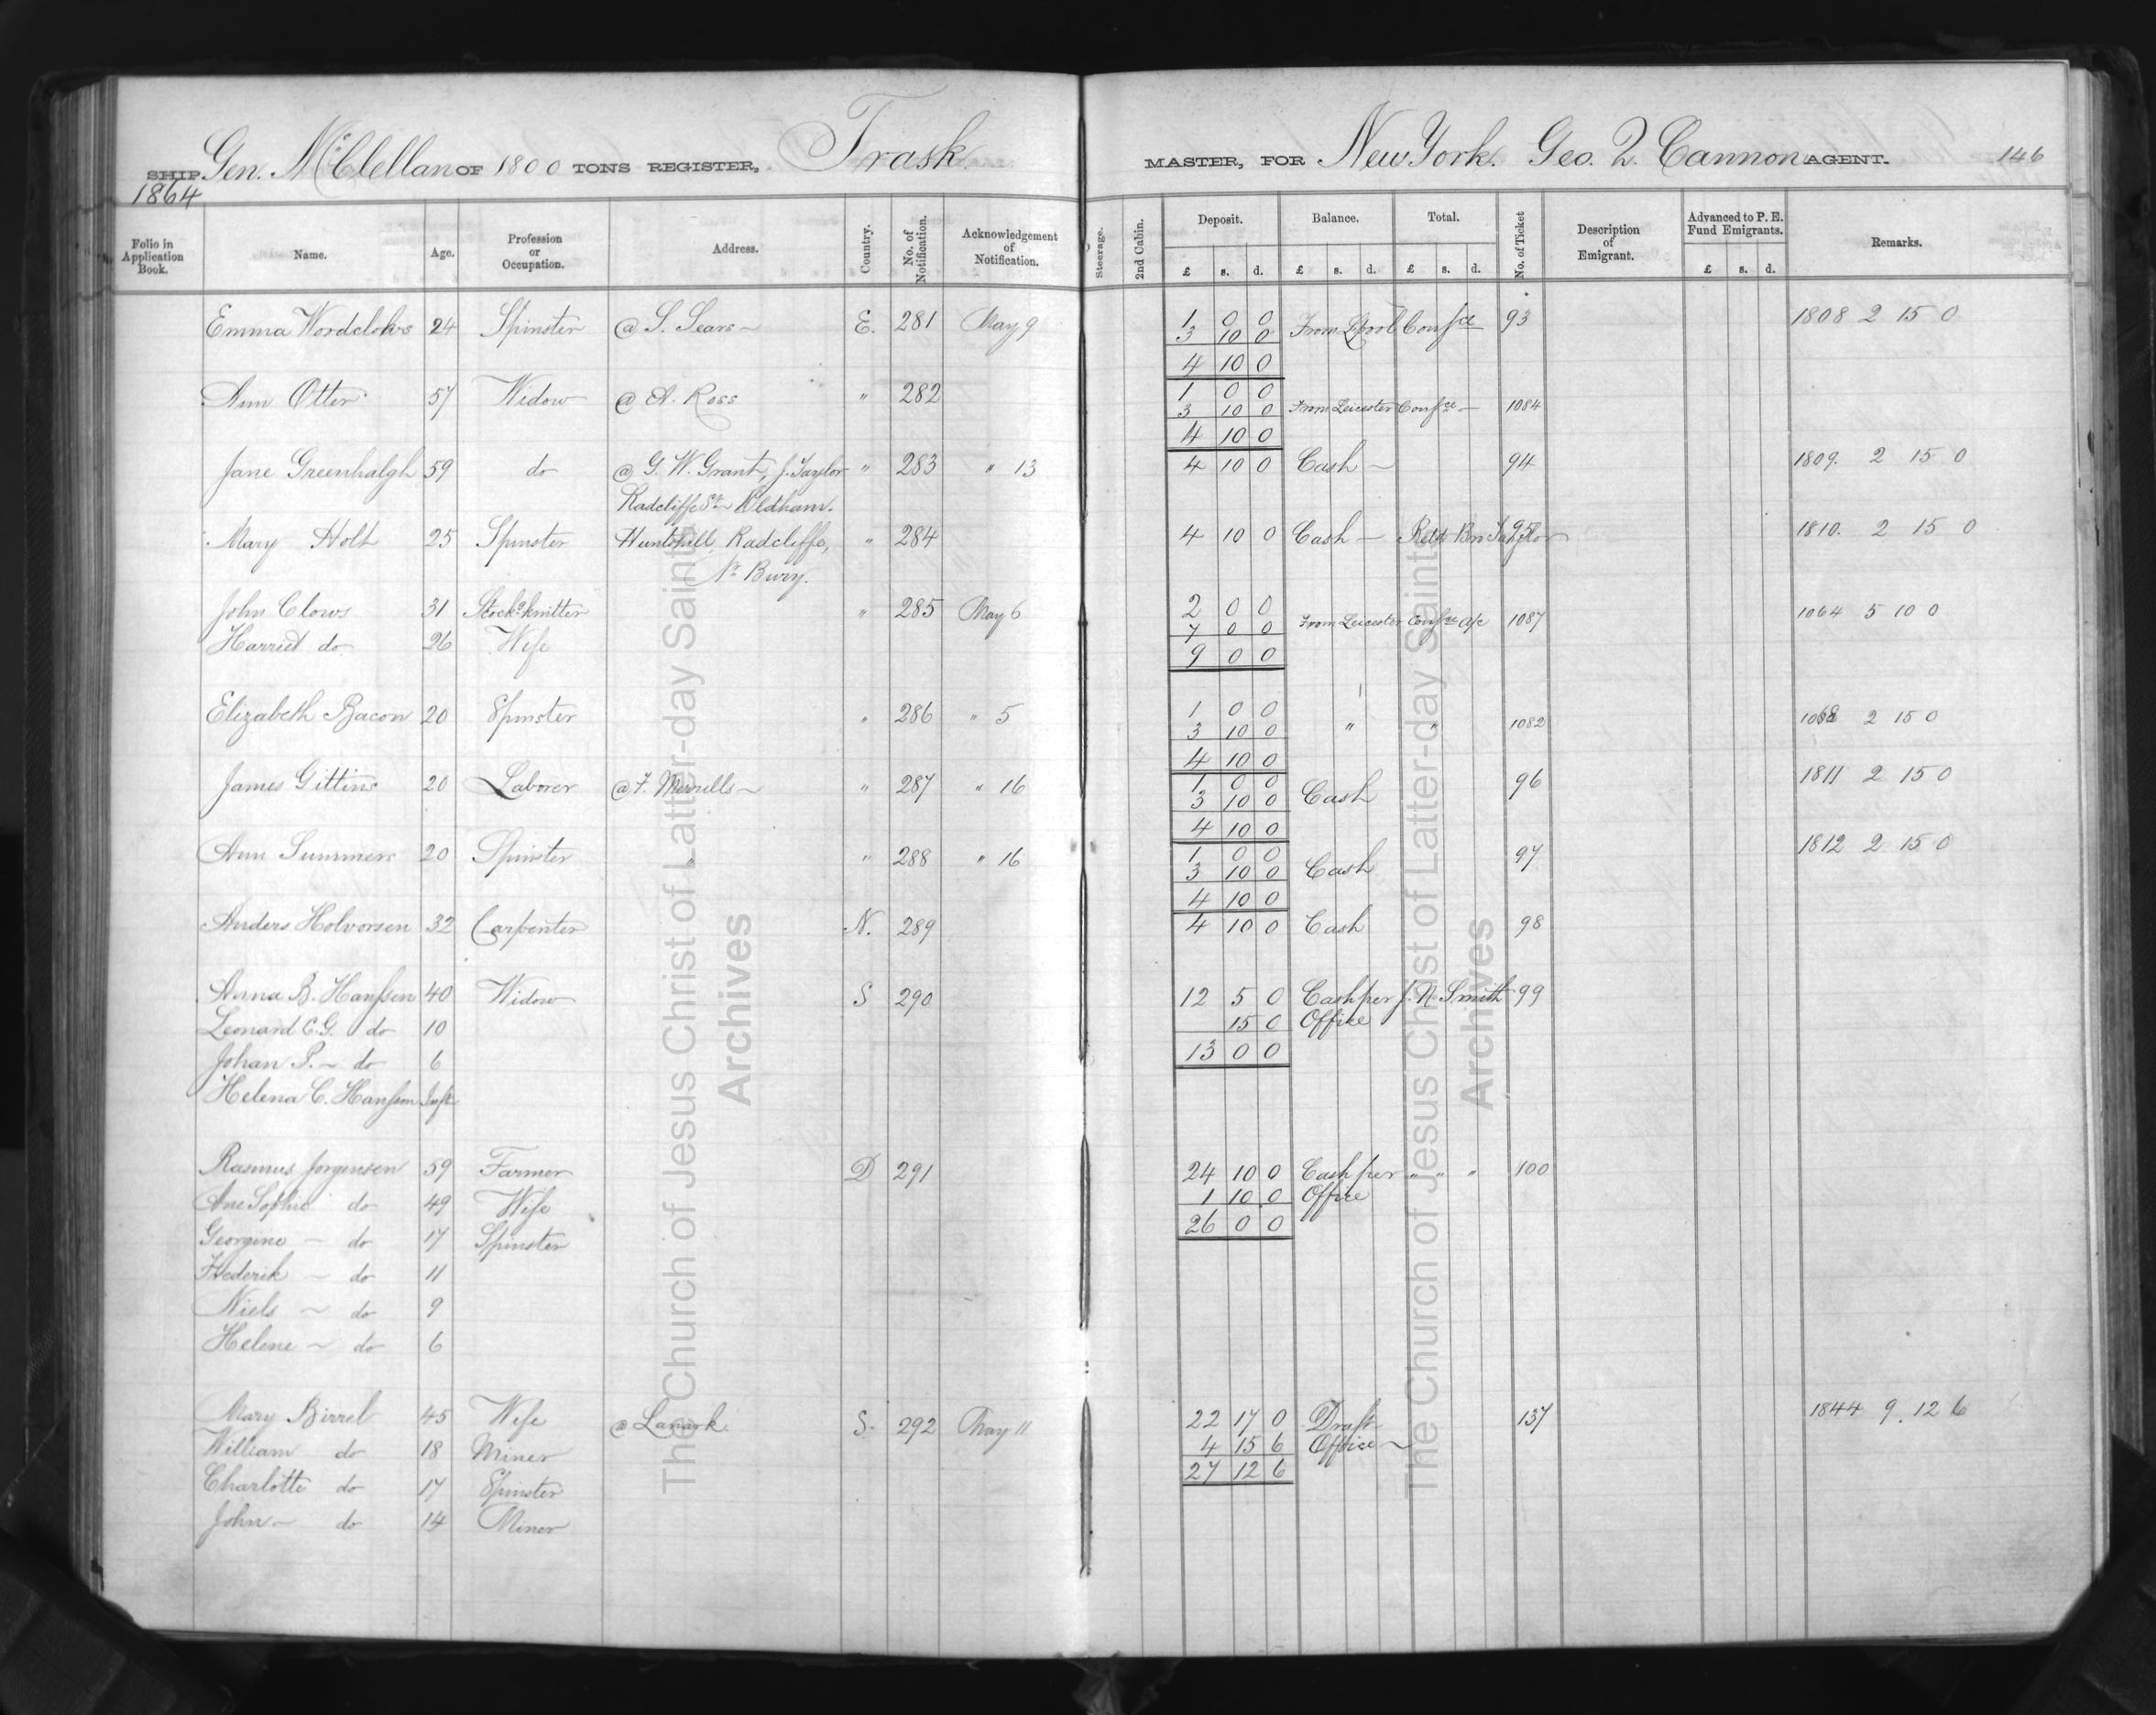 SHIP Gen. McClellan OF 1800 TONS REGISTER, Trask MASTER, FOR New York. Geo. Q. Cannon AGENT. 146
1864
Folio in Application Book. Name. Age. Profession or Occupation. Address. Country. No. of Notification. Acknowledgement of Notification. Steerage. 2nd Cabin. Deposit. Balance. Total. No. of Ticket Description of Emigrant. Advanced to P. E. Fund Emigrants. Remarks.
£ s. d. £ s. d. £ s. d. £ s. d.
Emma 24 Spinster @ S. Sears E. 281 May 9 1 0 0 From Lpool Confce 93 1808 2 15 0
3 10 0
4 10 0
Ann Otter 57 Widow @ A. Ross " 282 1 0 0
3 10 0 From Leicester Confce 1084
4 10 0
Jane Greenhalgh 59 do @ G. W. Grant, J. Taylor " 283 " 13 4 10 0 Cash 94 1809. 2 15 0
Radcliffe St Oldham.
Mary Holt 25 Spinster Radcliffe, " 284 4 10 0 Cash 95 1810. 2 15 0
Nr Bury.
John Clows 31 Stockg knitter " 285 May 6 2 0 0
Harriet do 26 Wife 7 0 0 From Leicester Confce a/c 1087 1064 5 10 0
9 0 0
Elizabeth Bacon 20 Spinster " 286 " 5 1 0 0
3 10 0 " " 1082 1068 2 15 0
4 10 0
James Gittins 20 Laborer @ F. " 287 " 16 1 0 0 96 1811 2 15 0
3 10 0 Cash
4 10 0
Ann Summers 20 Spinster " " 288 " 16 1 0 0 97 1812 2 15 0
3 10 0 Cash
4 10 0
Anders Holvorsen 32 Carpenter N. 289 4 10 0 Cash 98
Anna B. Hansson 40 Widow S 290 12 5 0 Cash per J. N. Smith 99
Leonard C. G. do 10 15 0 Office
Johan P. do 6 13 0 0
Helena C. Hansson Inft
Rasmus Jorgensen 59 Farmer D 291 24 10 0 Cash per " " " 100
Ane Sophie do 49 Wife 1 10 0 Office
Georgine do 17 Spinster 26 0 0
Frederik do 11
Niels do 9
Helene do 6
Mary Birrel 45 Wife @ Lanark S. 292 May 11 22 17 0 Draft 137 1844 9. 12 6
William do 18 Miner 4 15 6 Office
Charlotte do 17 Spinster 27 12 6
John do 14 Miner
The Church of Jesus Christ of Latter-day Saints
Archives
The Church of Jesus Christ of Latter-day Saints
Archives